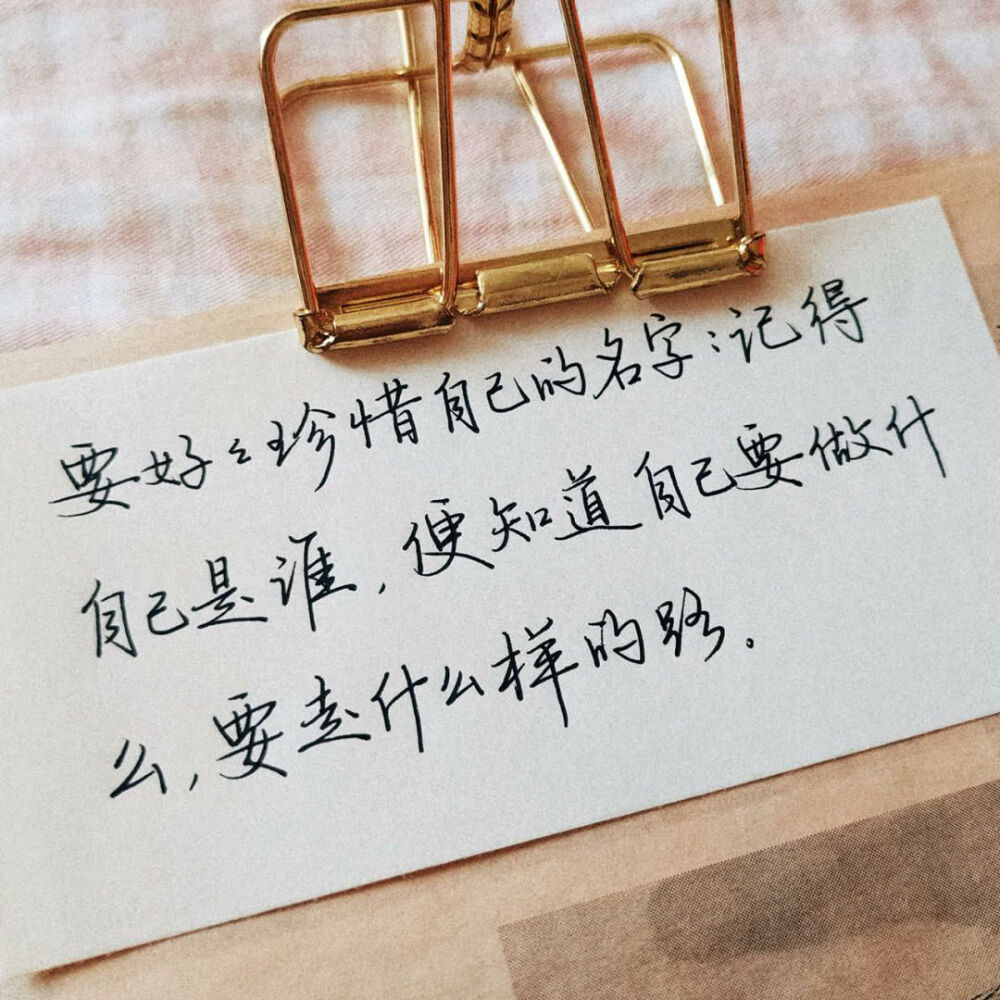 要好々珍惜自己的名字:记得
自己是谁,便知道自己要做什
么,要走什么样的路。